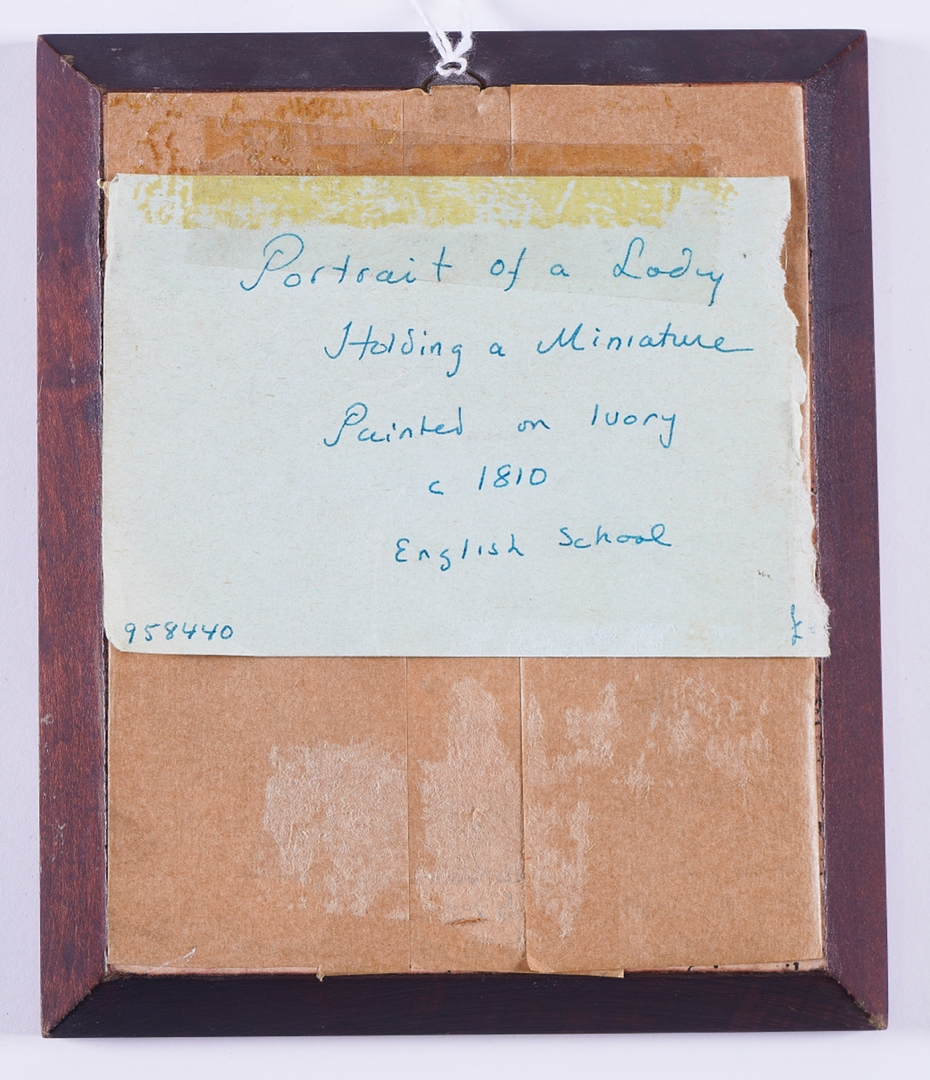 Portrait of a Lady
Holding a Miniature
Painted on Ivory
c 1810
English School
958440
£